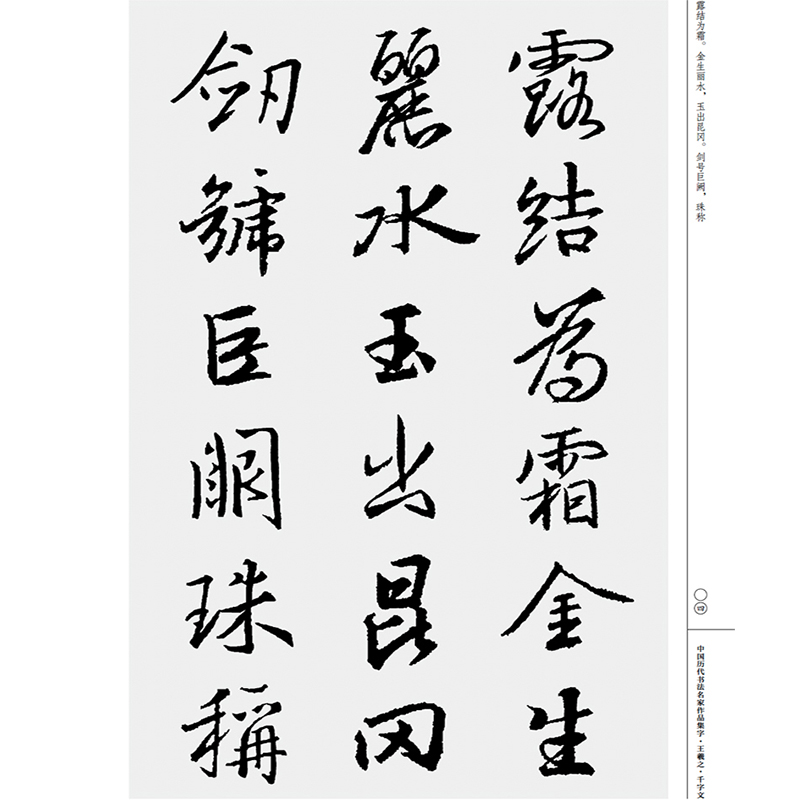 露结为霜。金生丽水，玉出昆冈。剑号巨阙，珠称
露結為霜金生
麗水玉出昆岡
劒號巨闕珠稱
〇四
中国历代书法名家作品集字·王羲之·千字文